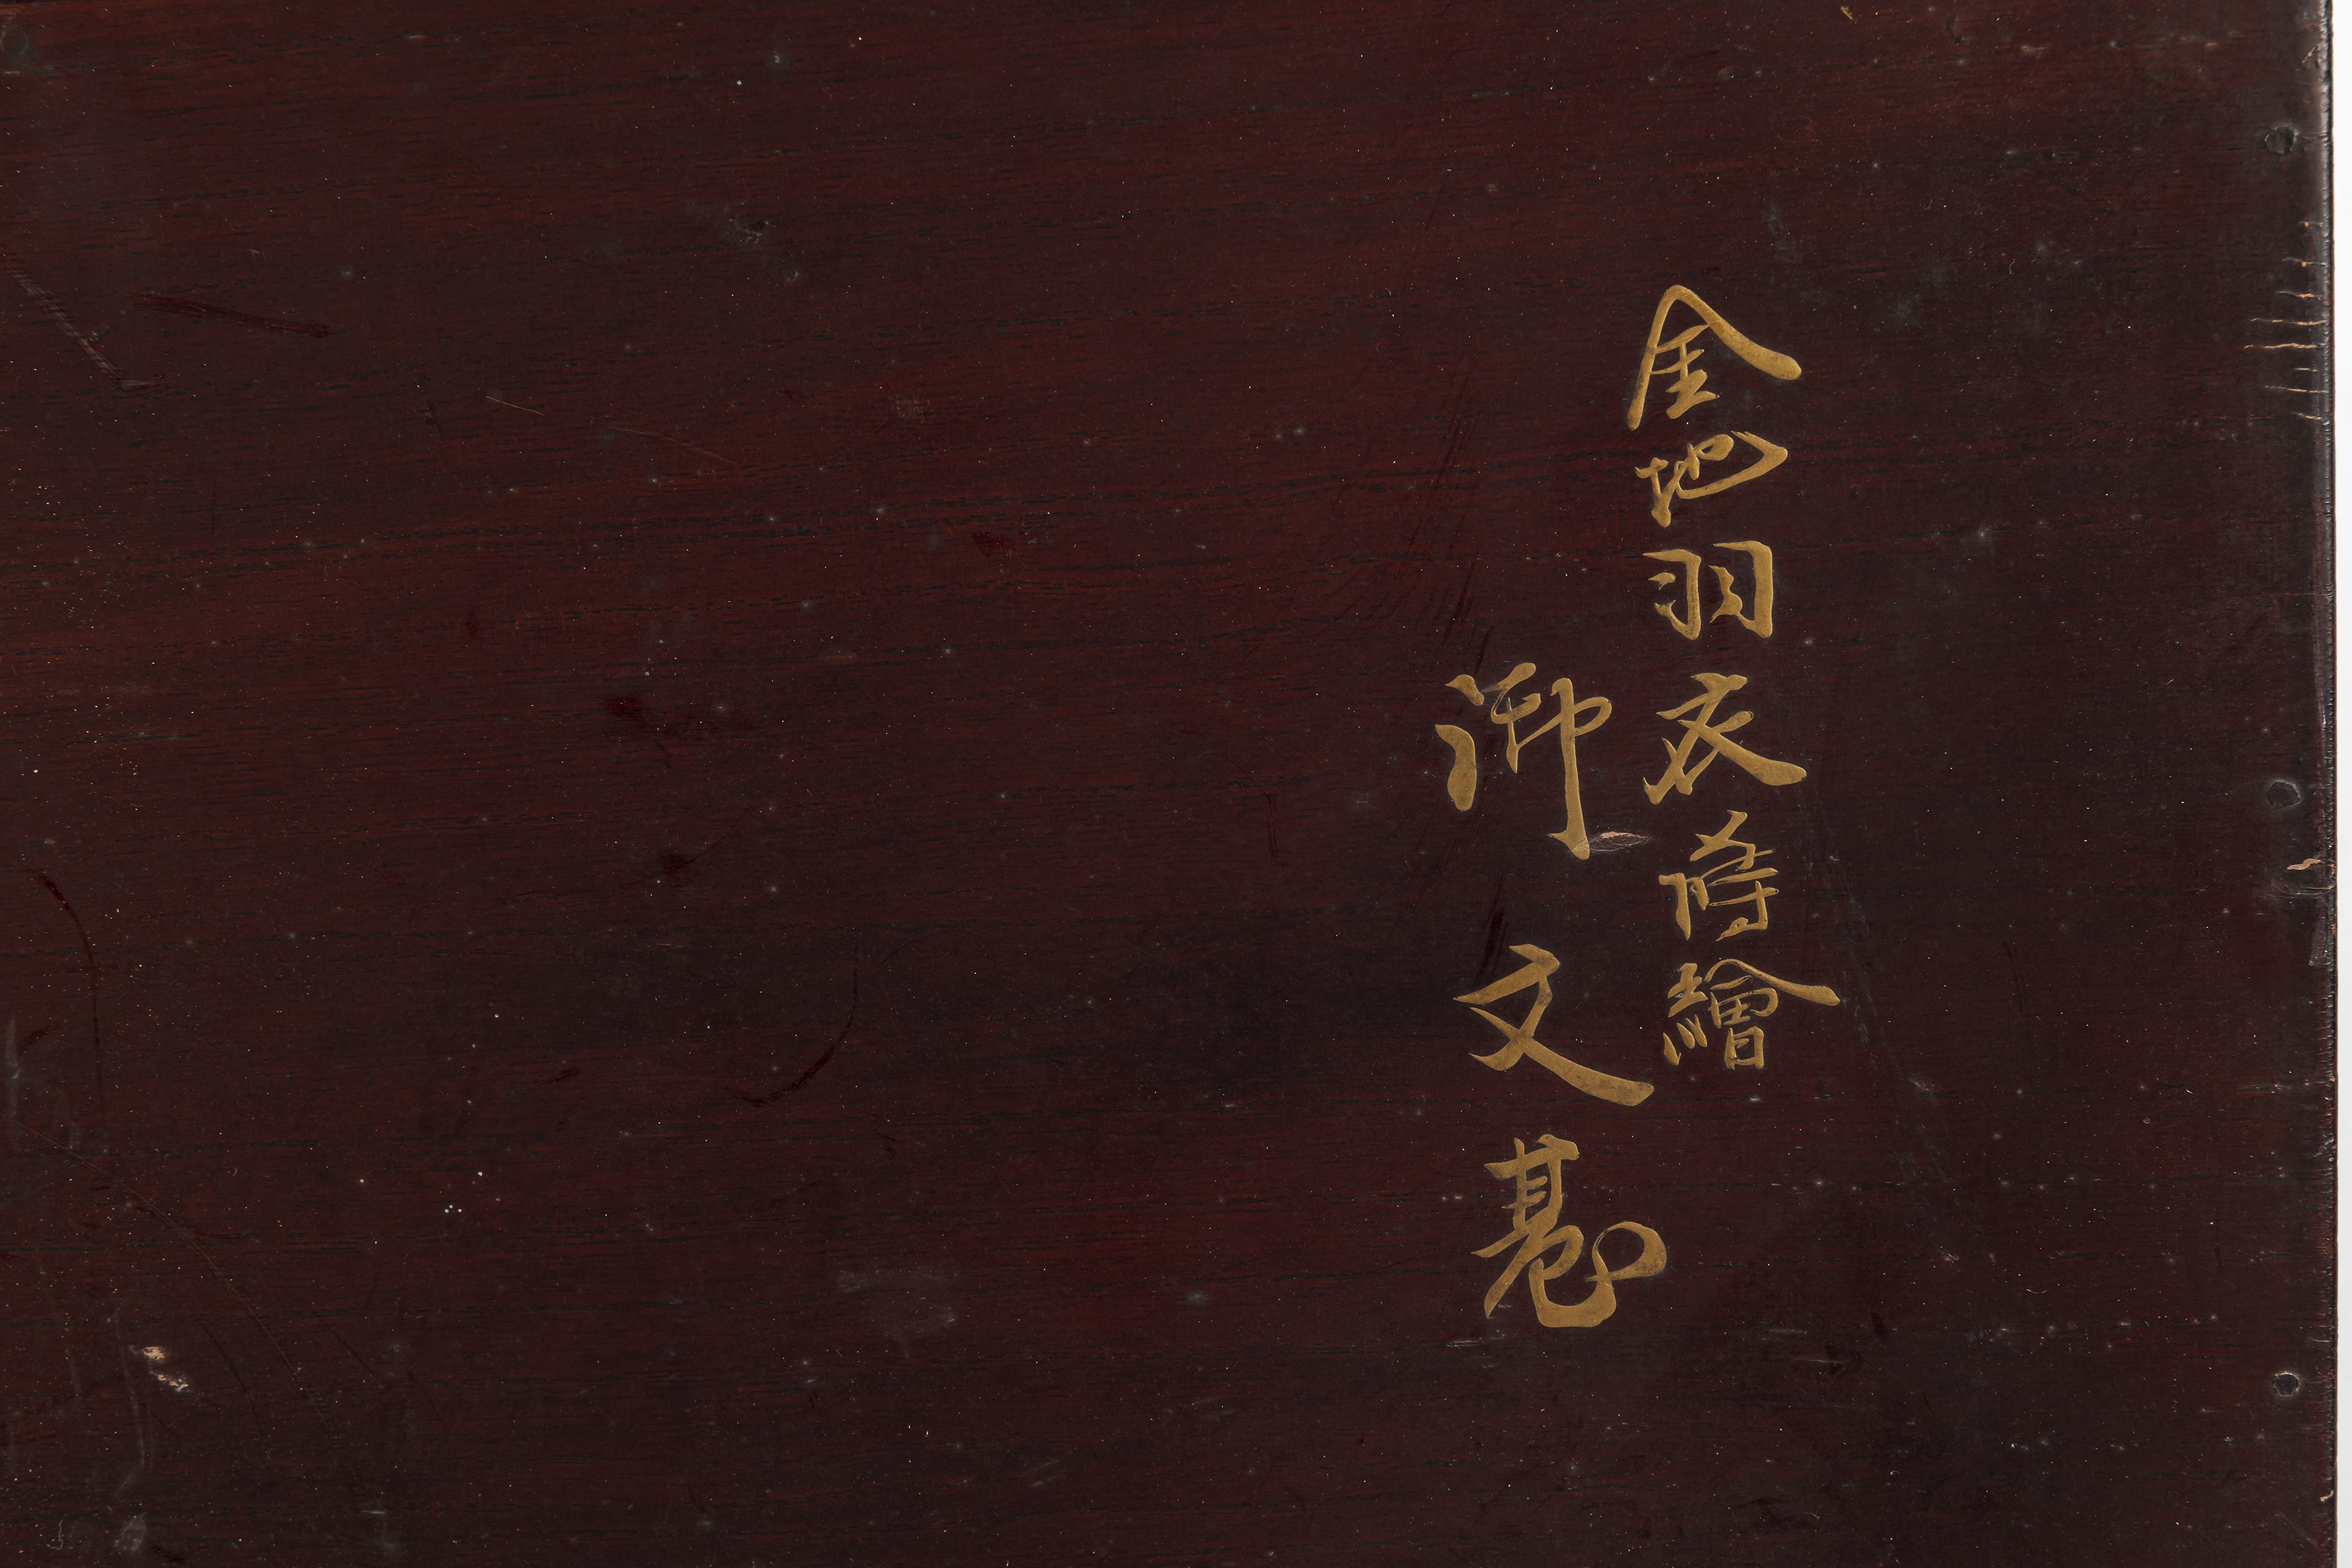 金地羽衣蒔繪
御文臺